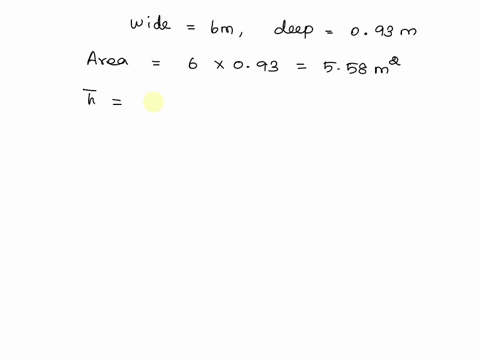 wide = 6m, deep = 0.93 m
Area = 6 × 0.93 = 5.58 m²
h̅ =